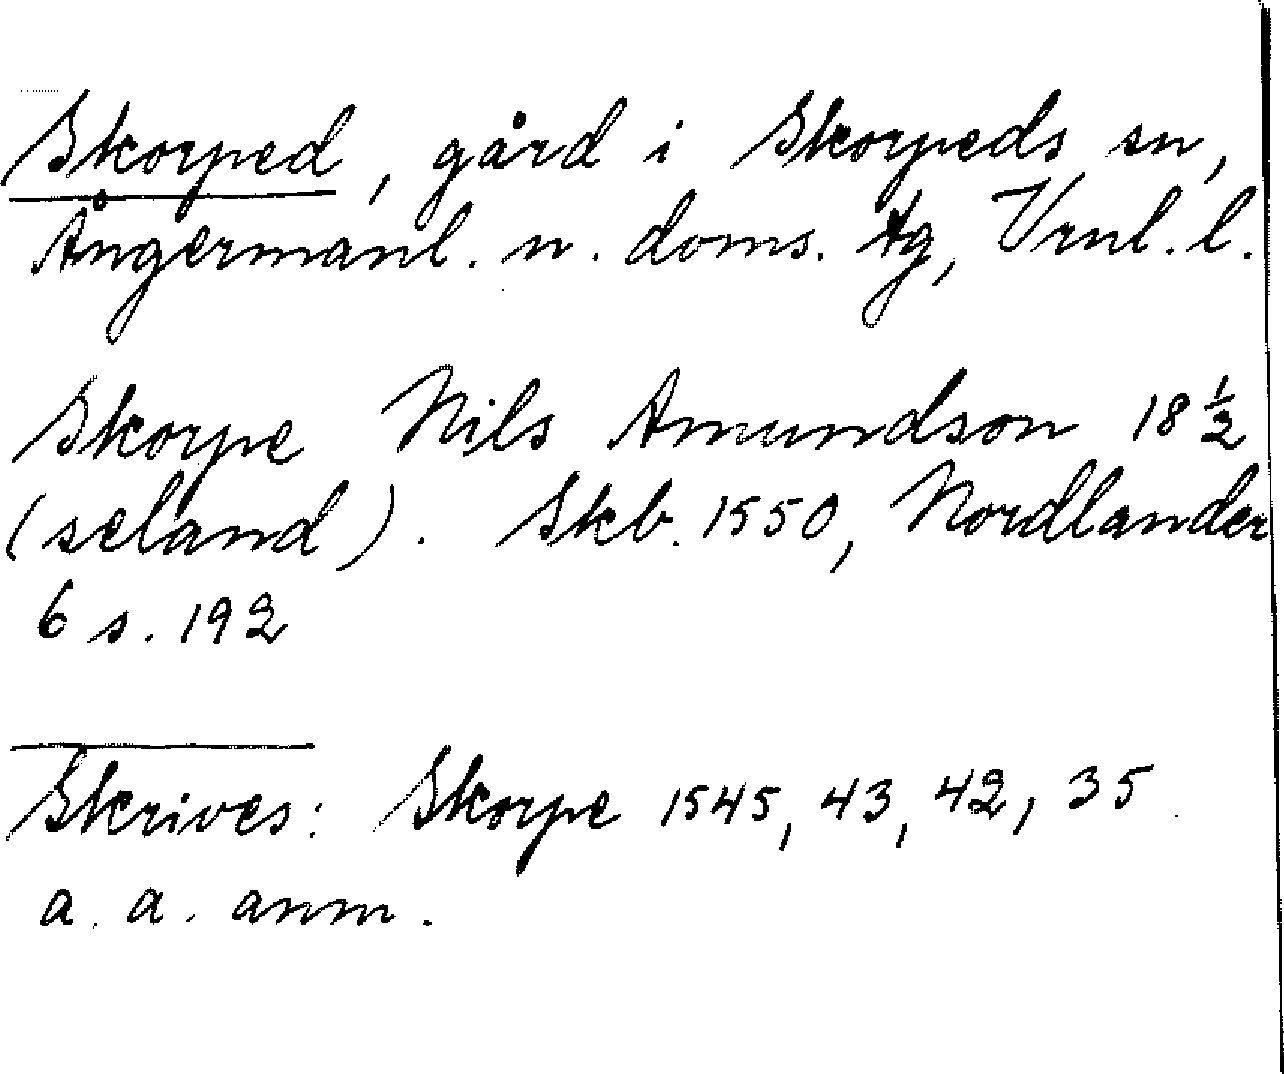 Skorped, gård i Skorpeds sn,
Ångermanl. n. doms. tg, Vrnl. l.
Skorpe Nils Amundson 18 ½
(seland). Skb. 1550, Nordlander
6 s. 192
Skrives: Skorpe 1545, 43, 42, 35
a. a. anm.